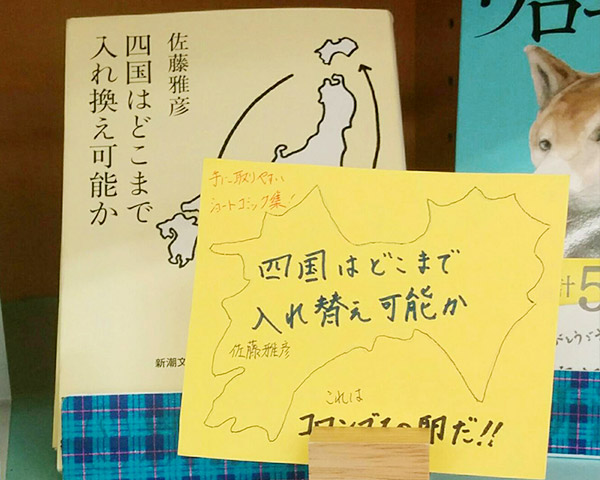 佐藤雅彦
四国はどこまで
入れ換え可能か
新潮文
手に取りやすい
ショートコミック集!
四国はどこまで
入れ替え可能か
佐藤雅彦
これは
コロンブスの卵だ!!
計5